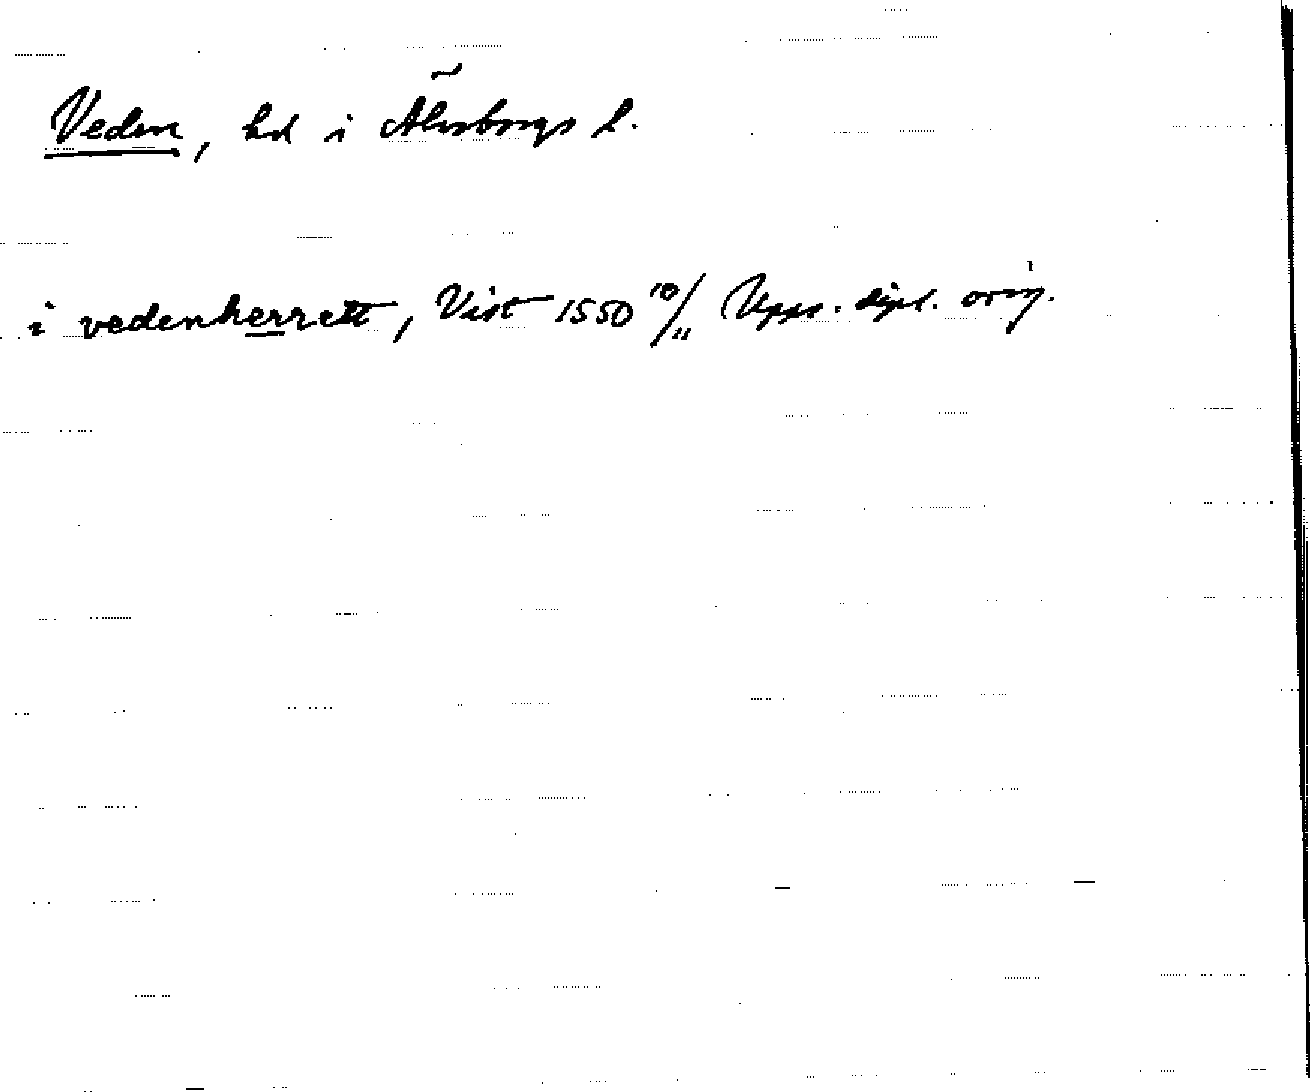 Vedene, hd i Älvsborgs l.
i vedenherrett, Vist 1550 10/11 Upps. dipl. orig.